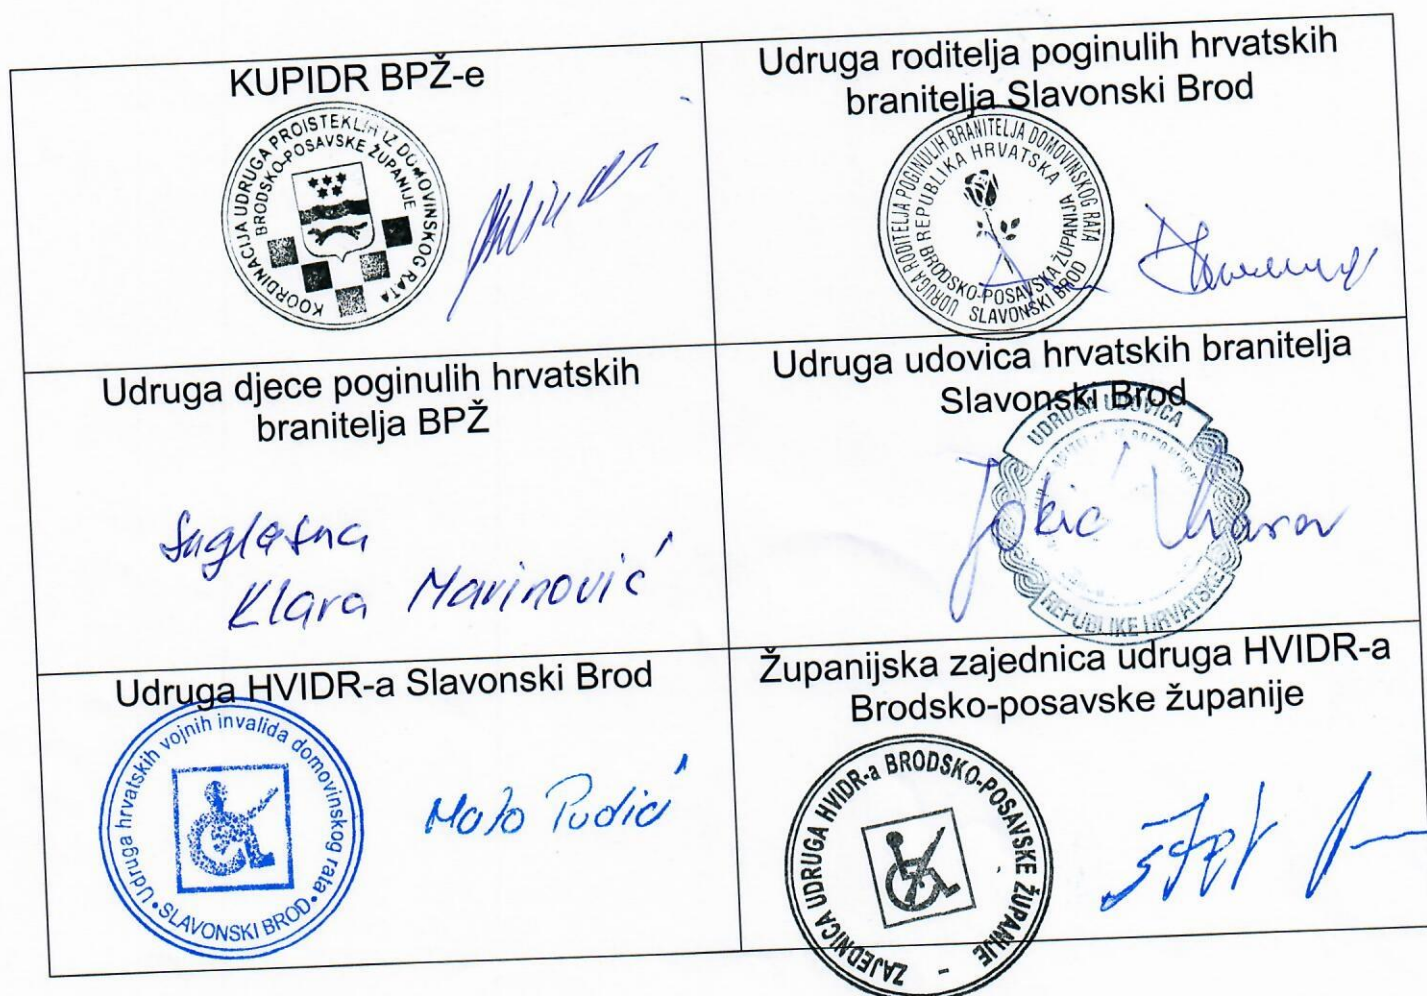 KUPIDR BPŽ-e
KOORDINACIJA UDRUGA PROISTEKLIH IZ DOMOVINSKOG RATA
BRODSKO-POSAVSKE ŽUPANIJE
Udruga roditelja poginulih hrvatskih
branitelja Slavonski Brod
UDRUGA RODITELJA POGINULIH BRANITELJA DOMOVINSKOG RATA
REPUBLIKA HRVATSKA
BRODSKO-POSAVSKA ŽUPANIJA
SLAVONSKI BROD
Udruga djece poginulih hrvatskih
branitelja BPŽ
Suglasna
Klara Marinović
Udruga udovica hrvatskih branitelja
Slavonski Brod
UDRUGA UDOVICA
REPUBLIKE HRVATSKE
Jokić
Udruga HVIDR-a Slavonski Brod
Udruga hrvatskih vojnih invalida domovinskog rata
SLAVONSKI BROD
Mato Pudić
Županijska zajednica udruga HVIDR-a
Brodsko-posavske županije
ZAJEDNICA UDRUGA HVIDR-a BRODSKO-POSAVSKE ŽUPANIJE -